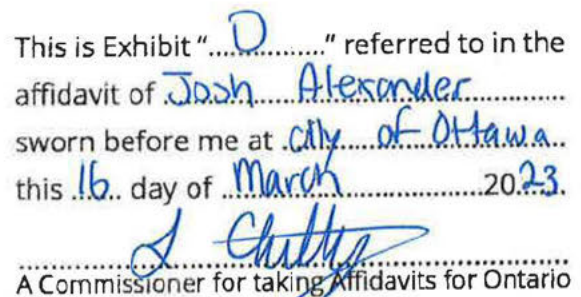 This is Exhibit "....D.........." referred to in the
affidavit of Josh Alexander
sworn before me at city of Ottawa
this 16 day of March 2023.
A Commissioner for taking Affidavits for Ontario